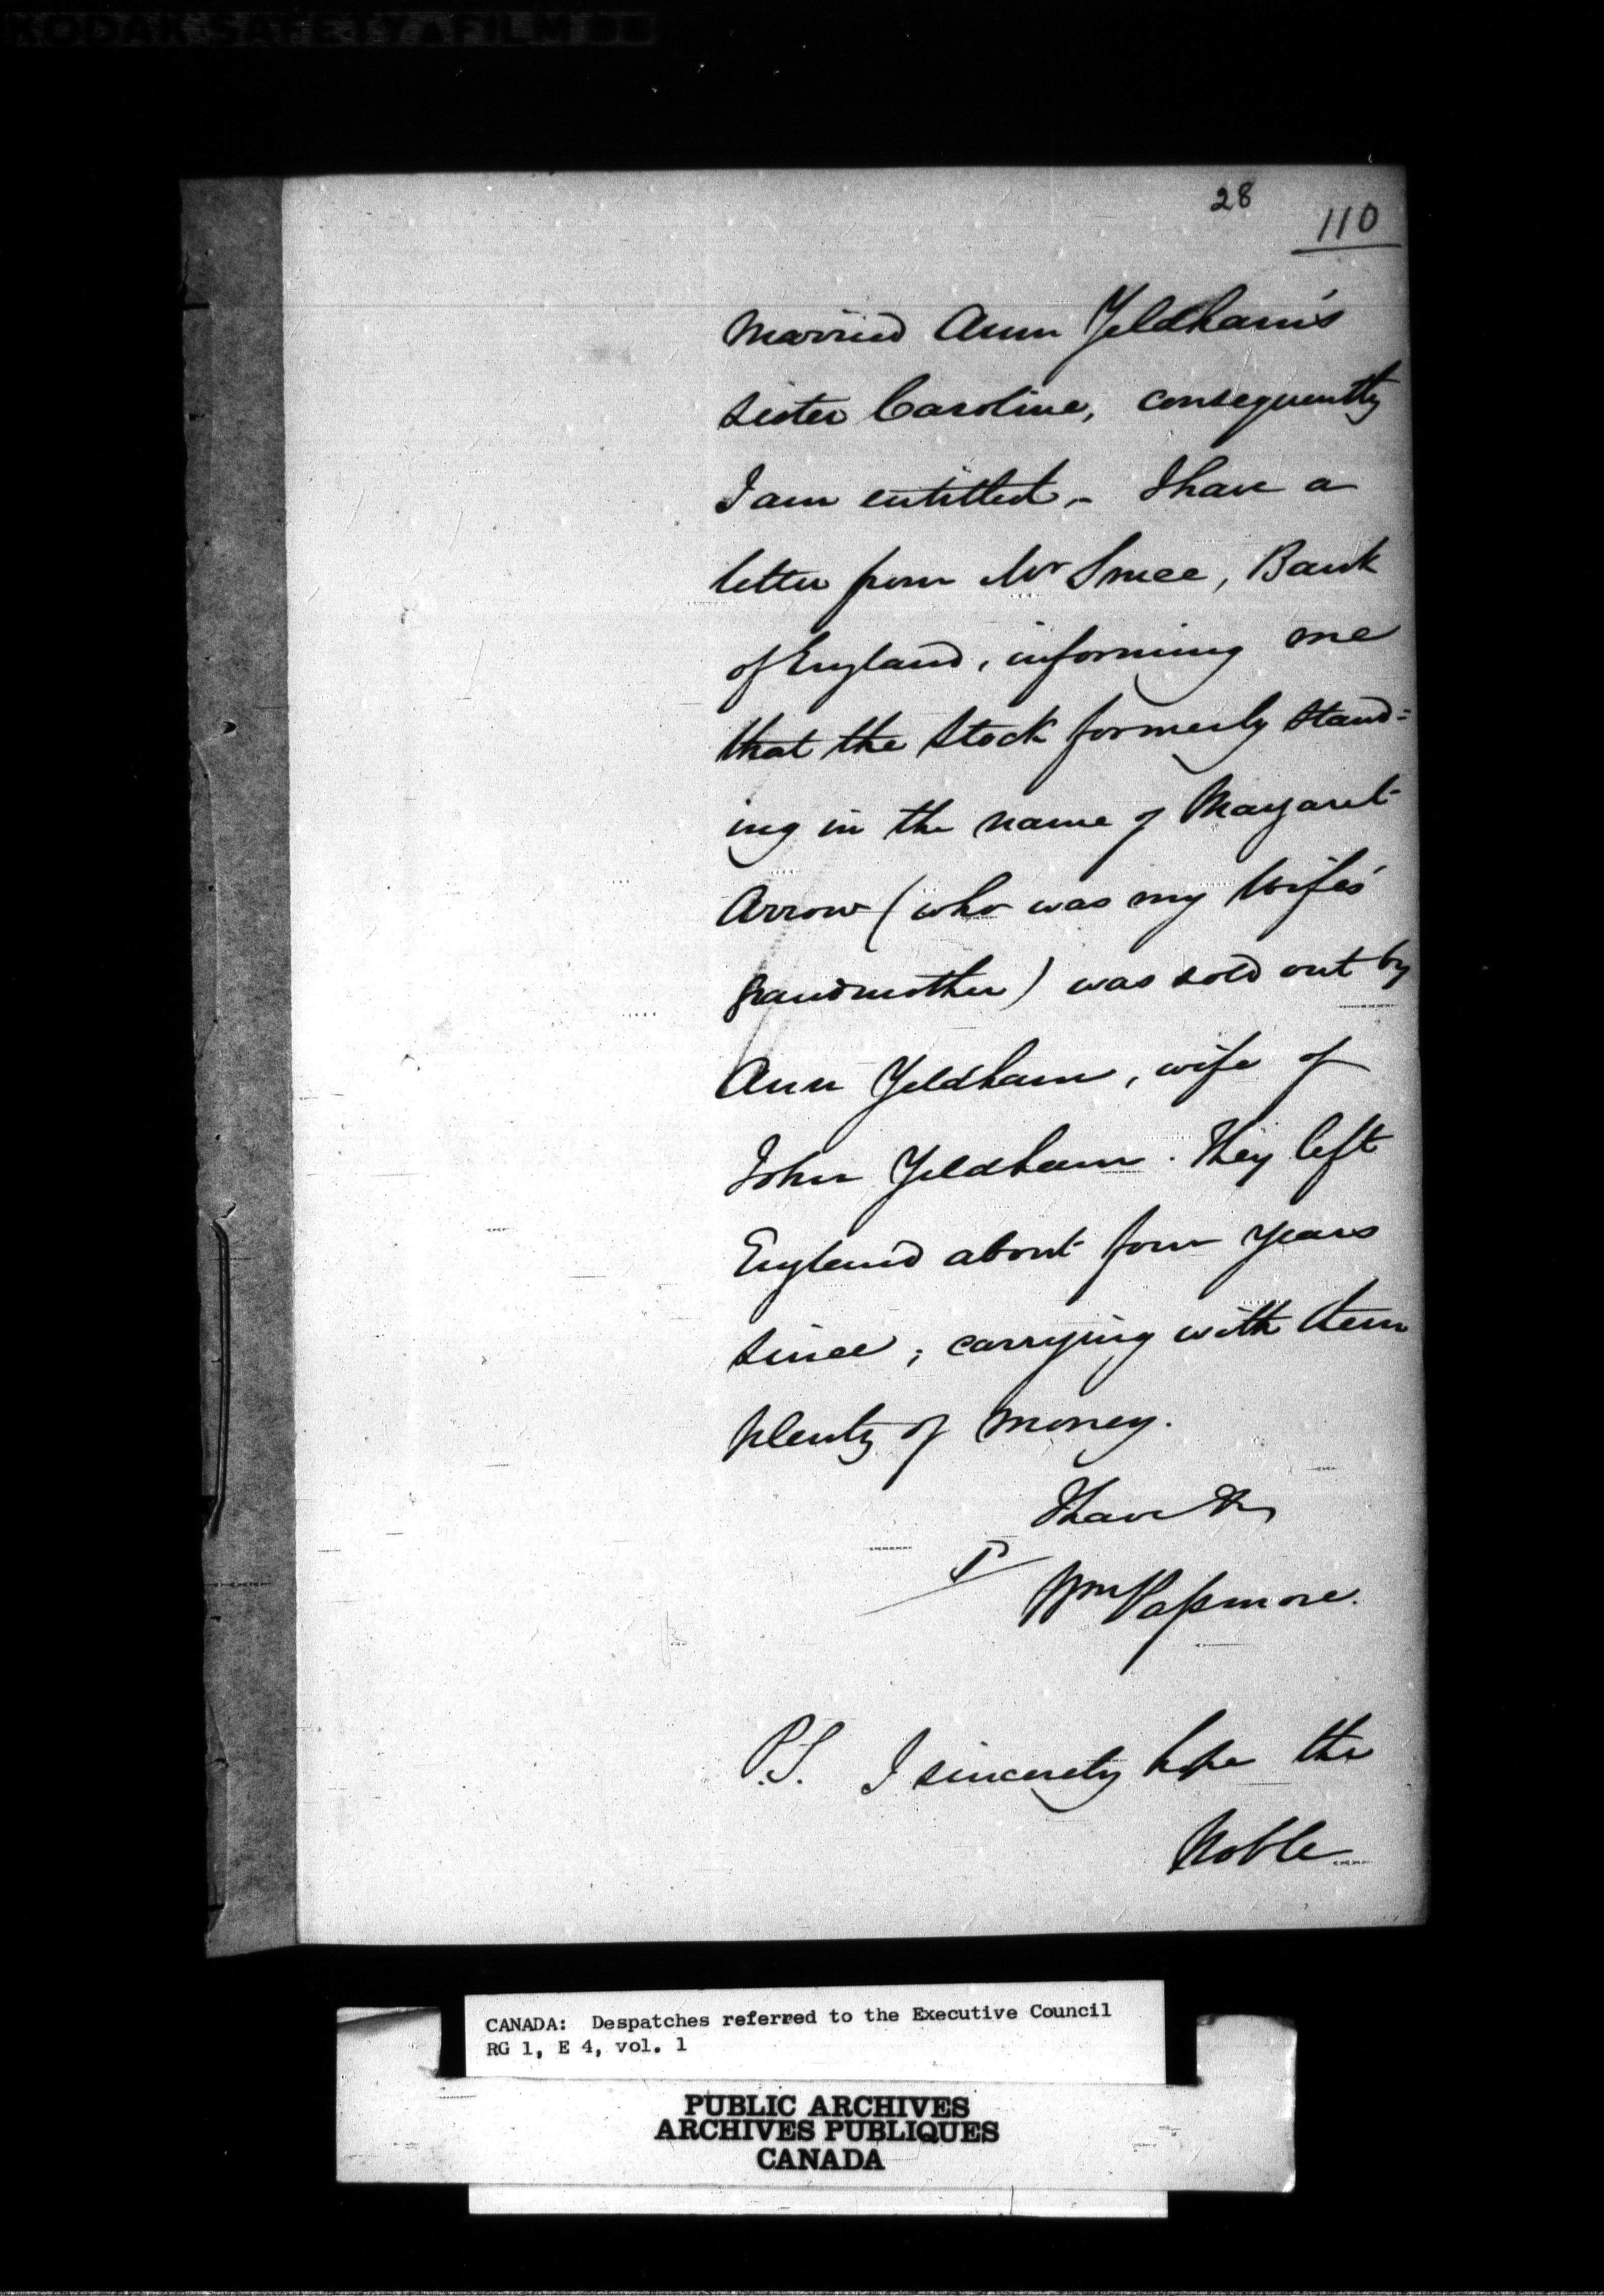 KODAK SAFETY FILM
28
110
married Ann Yeldham's
sister Caroline, consequently
I am entitled. - I have a
letter from Mr Smee, Bank
of England, informing me
that the Stock formerly Stand=
ing in the name of Margaret
Arrow (who was my Wife's
grandmother) was sold out by
Ann Yeldham, wife of
John Yeldham. They left
England about four years
since; carrying with them
plenty of money.
I have &c
Wm Passmore.
P.S. I sincerely hope the
Noble
CANADA: Despatches referred to the Executive Council
RG 1, E 4, vol. 1
PUBLIC ARCHIVES
ARCHIVES PUBLIQUES
CANADA